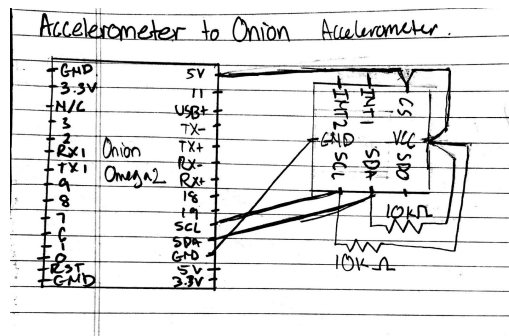 Accelerometer to Onion Accelerometer.
GND
3.3V
N/C
3
2
RX1
TX1
9
8
7
6
1
0
RST
GND
Onion
Omega2
5V
11
USB+
TX-
TX+
RX-
RX+
18
19
SCL
SDA
GND
5V
3.3V
INT2
INT1
CS
GND
VCC
SCL
SDA
SDO
10kΩ
10kΩ